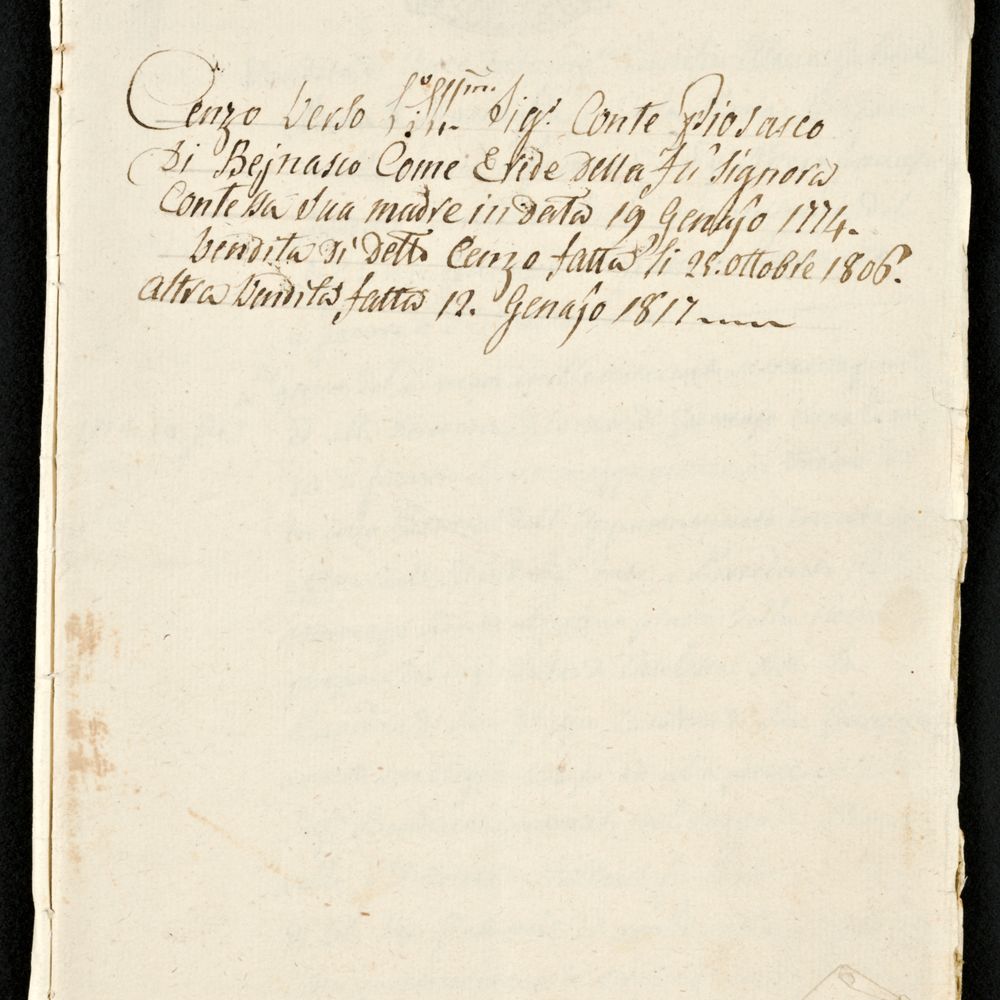 Cenzo verso L'Ill.mo Sig.r Conte Piosasco
Di Bejnasco Come Eride della fù Signora
Contessa sua madre in data 19 Genajo 1774.
Vendita di detto Cenzo fatta li 25. ottobre 1806.
Altra Vendita fatta 12. Genajo 1817